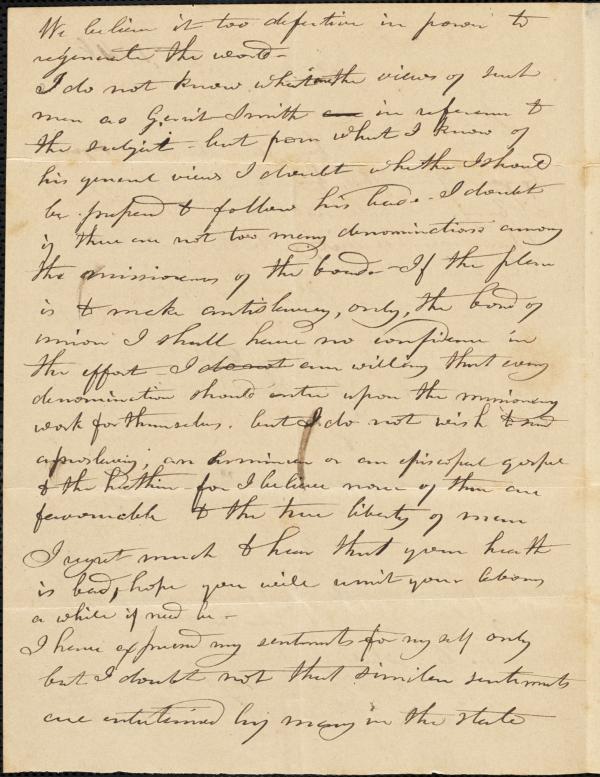 We believe it too defective in power to
regenerate the world -
I do not know what the views of such
men as Gerrit Smith are in reference to
the subject - but from what I know of
his general views I doubt whether I should
be prepared to follow his lead - I doubt
if there are not too many denominations among
the missionaries of the board - If the plan
is to make antislavery, only, the bond of
union I shall have no confidence in
the effort - I do not am willing that every
denomination should enter upon the missionary
work for themselves. but I do not wish to send
a proslavery, an Arminian or an episcopal gospel
to the heathen - for I believe none of them are
favourable to the true liberty of man
I regret much to hear that your health
is bad, hope you will remit your labours
a while if need be -
I have expressed my sentiments for myself only
but I doubt not that similar sentiments
are entertained by many in the state